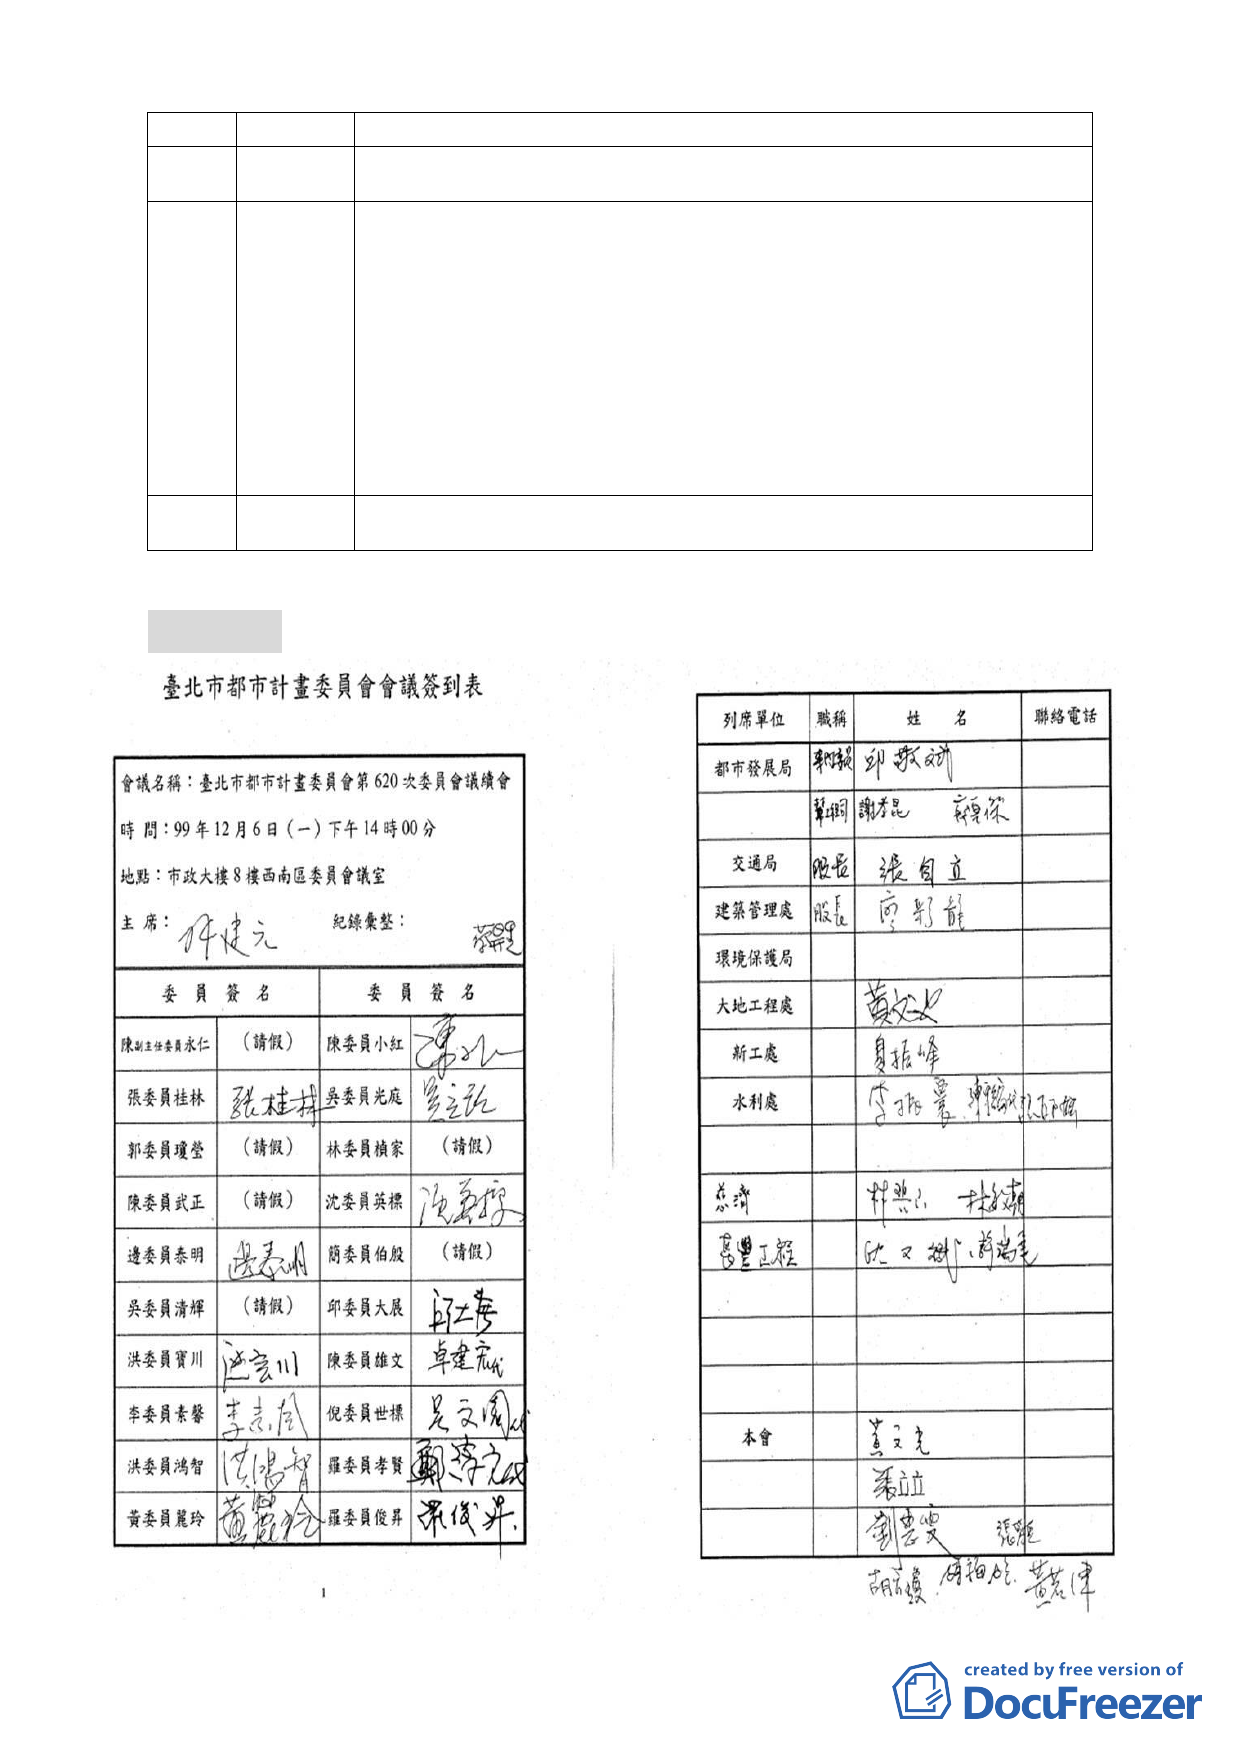 臺北市都市計畫委員會會議簽到表
會議名稱：臺北市都市計畫委員會第620次委員會議續會
時 間：99年12月6日（一）下午14時00分
地點：市政大樓8樓西南區委員會議室
主 席： 紀錄彙整：
委 員 簽 名 委 員 簽 名
陳副主任委員永仁 （請假） 陳委員小紅
張委員桂林 張桂林 吳委員光庭
郭委員瓊瑩 （請假） 林委員楨家 （請假）
陳委員武正 （請假） 沈委員英標
邊委員泰明 邊泰明 簡委員伯殷 （請假）
吳委員清輝 （請假） 邱委員大展 邱大展
洪委員寶川 洪寶川 陳委員雄文 卓建宏代
李委員素馨 李素馨 倪委員世標
洪委員鴻智 洪鴻智 羅委員孝賢
黃委員麗玲 黃麗玲 羅委員俊昇 羅俊昇
1
列席單位 職稱 姓 名 聯絡電話
都市發展局 邱敬斌
交通局 股長 張自立
建築管理處 股長 廖彩龍
環境保護局
大地工程處
新工處 夏振峰
水利處 李振震
慈濟
長豐工程
本會
created by free version of
DocuFreezer